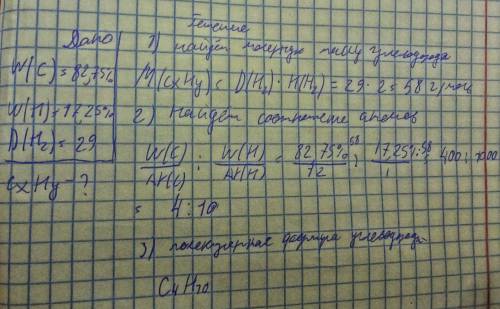 Дано
W(C) = 82,75%
W(H) = 17,25%
D(H₂) = 29
CxHy - ?
Решение
1) найдём молярную массу углеводорода
M(CxHy) = D(H₂) · M(H₂) = 29 · 2 = 58 г/моль
2) Найдём соотношение атомов
W(C)/Ar(C) : W(H)/Ar(H) = 82,75%·58/12 : 17,25%·58/1 : 400 : 1000
= 4 : 10
3) молекулярная формула углеводорода
C₄H₁₀